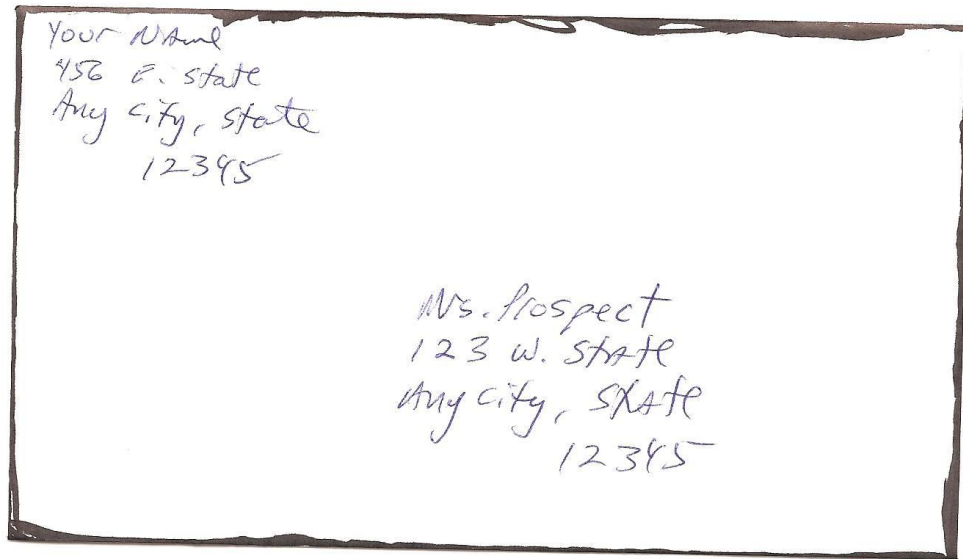 Your Name
456 E. State
Any City, State
12345
Ms. Prospect
123 W. State
Any City, State
12345